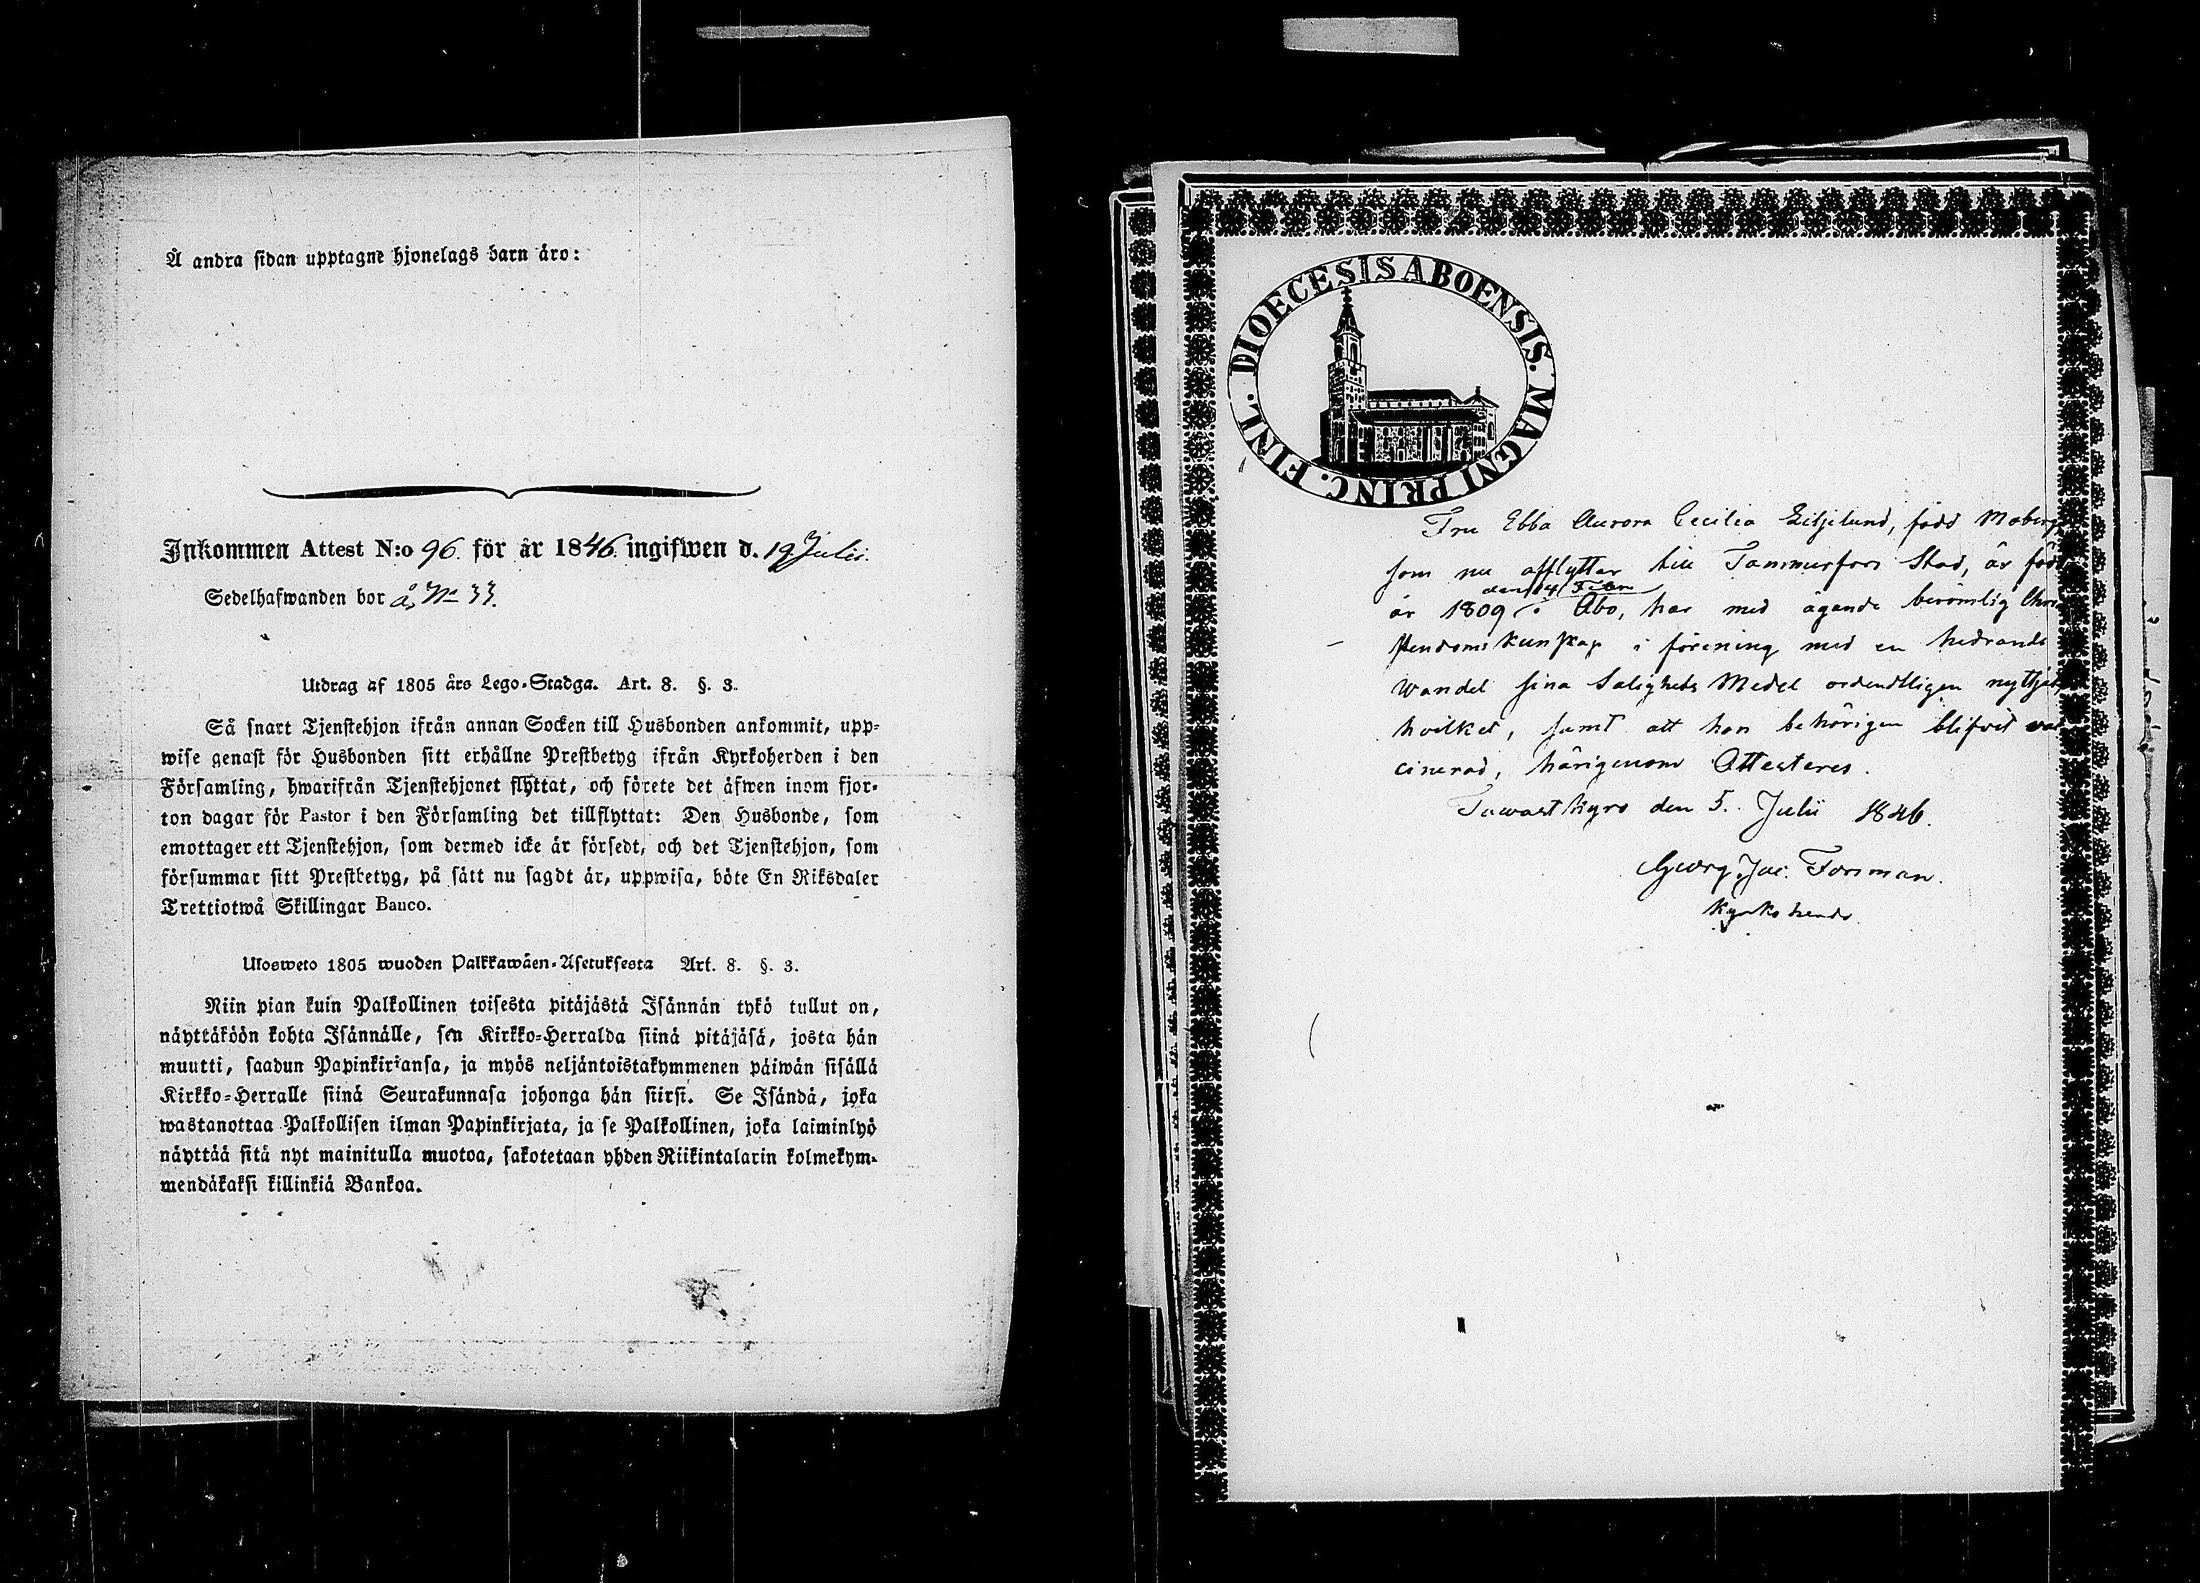 Å andra sidan upptagne hjonelags barn äro:
Inkommen Attest N:o 96. för år 1846. ingifwen d. 19 Julii.
Sedelhafwanden bor å No 33.
Utdrag af 1805 års Lego-Stadga. Art. 8. §. 3.
Så snart Tjenstehjon ifrån annan Socken till Husbonden ankommit, upp-
wise genast för Husbonden sitt erhållne Prestbetyg ifrån Kyrkoherden i den
Församling, hwarifrån Tjenstehjonet flyttat, och förete det äfwen inom fjor-
ton dagar för Pastor i den Församling det tillflyttat: Den Husbonde, som
emottager ett Tjenstehjon, som dermed icke är försedt, och det Tjenstehjon, som
försummar sitt Prestbetyg, på sätt nu sagdt är, uppwisa, böte En Riksdaler
Trettiotwå Skillingar Banco.
Ulosweto 1805 wuoden Palkkawäen-Asetuksesta Art. 8. §. 3.
Niin pian kuin Palkollinen toisesta pitäjästä Isännän tykö tullut on,
näyttäköön kohta Isännälle, sen Kirkko-Herralda siinä pitäjäsä, josta hän
muutti, saadun Papinkirjansa, ja myös neljäntoistakymmenen päiwän sisällä
Kirkko-Herralle siinä Seurakunnasa johonga hän siirsi. Se Isändä, joka
wastanottaa Palkollisen ilman Papinkirjata, ja se Palkollinen, joka laiminlyö
näyttää sitä nyt mainitulla muotoa, sakotetaan yhden Riikintalarin kolmekym-
mendäkaksi killinkiä Bankoa.
DIOECESIS ABOENSIS. MAGNI PRINC. FINL.
Fru Ebba Aurora Cecilia Liljelund, född Moberg,
som nu afflyttar till Tammerfors Stad, är född
den 14 Febr
år 1809 i Åbo, har med ägande berömlig Chri-
stendoms kunskap i förening med en hedrande
wandel sina Salighets Medel ordentligen nyttjat,
hvilket, samt att hon behörigen blifvit vac-
cinerad, härigenom Attesteres.
Tawastkyro den 5. Julii 1846.
Georg Jac. Forsman.
Kyrkoherde